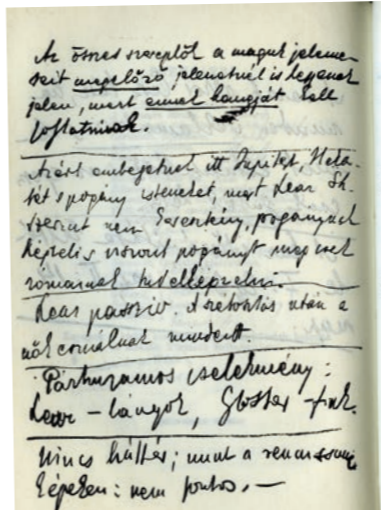 Az összes szereplők a maguk jelene-
seit megelőző jelenetnél is legyenek
jelen, mert annak hangját kell
folytatniok.
Azért emlegetnek itt Jupitert, Heka-
tét s pogány isteneket, mert Lear Sh.
szerint nem keresztény, pogánynak
képzeli s viszont pogányt meg csak
rómainak tud elképzelni.
Lear passzív. A szétosztás után a
nők csinálnak mindent.
Párhuzamos cselekmény:
Lear – lányok, Gloster – fiuk.
Nincs háttér; mint a renaissance
képeken: nem fontos. —